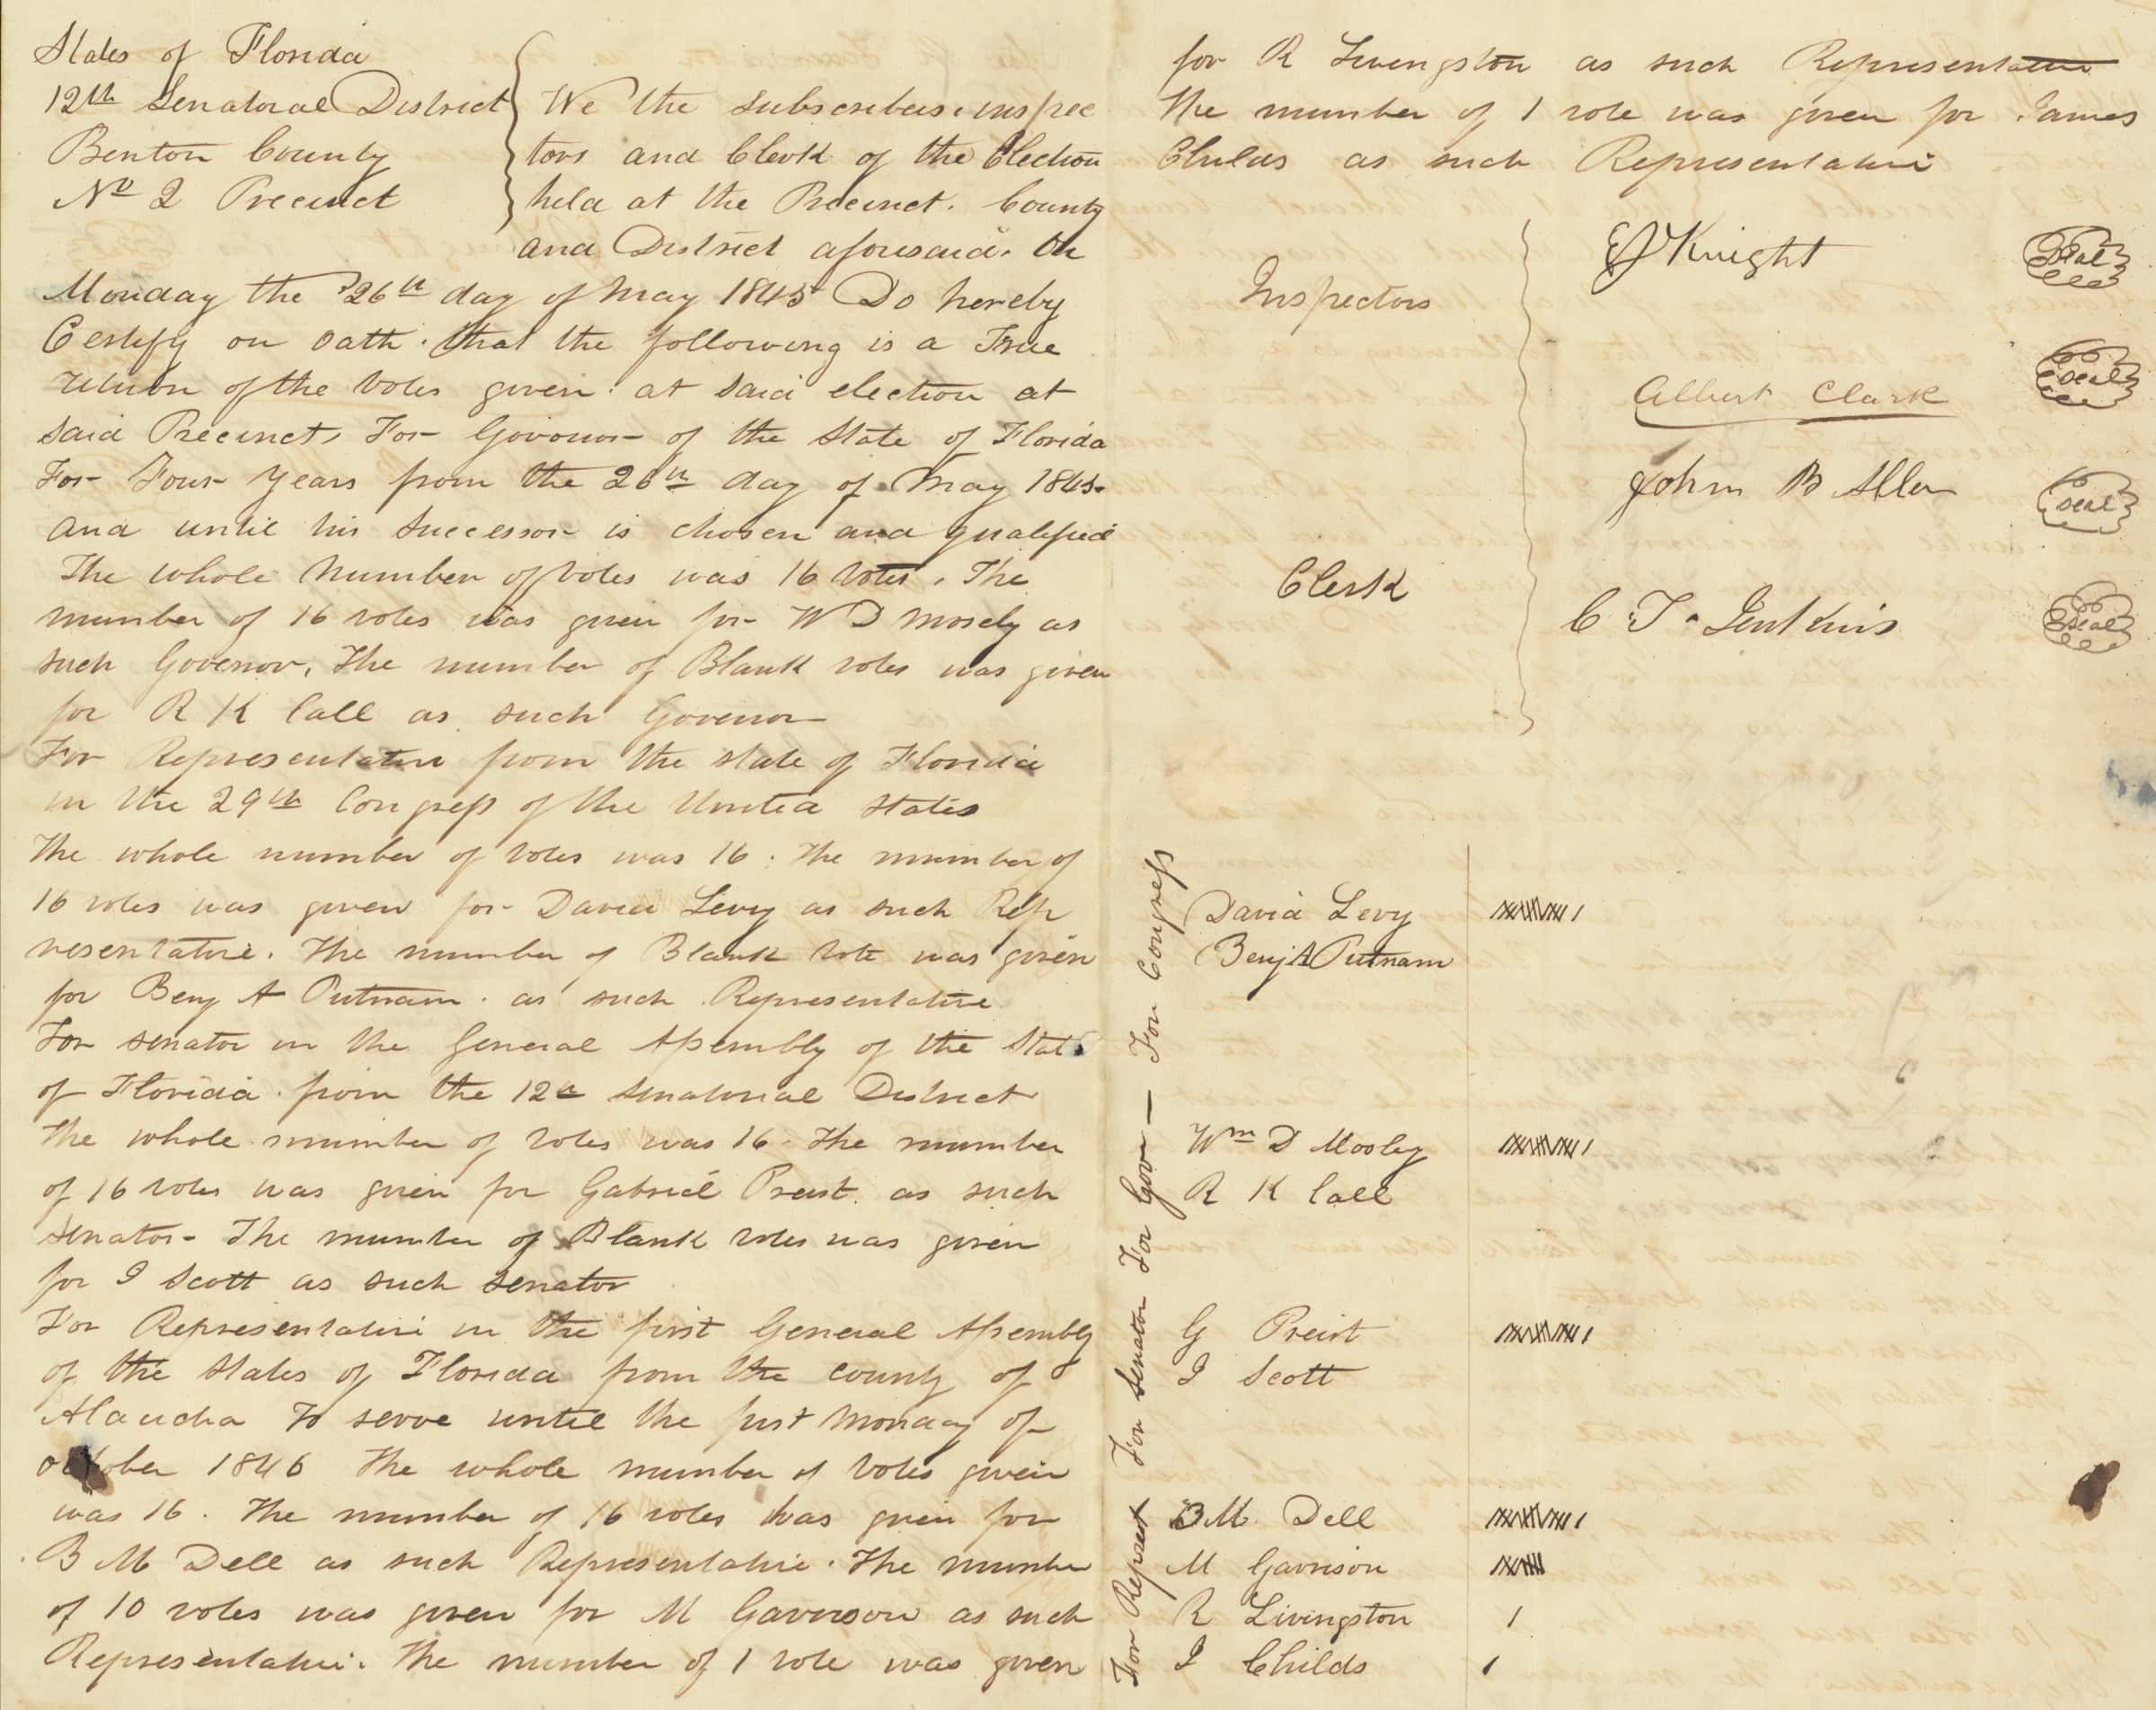 States of Florida
12th Senatorial District
Benton County
No 2 Precinct
We the subscribers inspec
tors and Clerk of the Election
held at the Precinct. County
and District aforesaid. On
Monday the 26th day of May 1845 Do hereby
Certify on oath. that the following is a True
return of the votes given at said election at
said Precinct, For Govonor of the State of Florida
For Four Years from the 26th day of May 1845.
and until his Successor is chosen and qualified
The whole Number of votes was 16 votes. The
number of 16 votes was given for W D Mosely as
such Govenor, The number of Blank votes was given
for R K Call as such Govenor
For Representative from the state of Florida
in the 29th Congress of the United States
The whole number of votes was 16. The number of
16 votes was given for David Levy as such Rep
resentative. The number of Blank vote was given
for Benj A Putnam. as such Representative
For senator in the General Assembly of the State
of Florida from the 12th senatorial District
The whole number of votes was 16. The number
of 16 votes was given for Gabriel Preist. as such
senator. The number of Blank votes was given
for I Scott as such senator
For Representative in the first General Assembly
of the States of Florida from the County of
Alaucha To serve until the first Monday of
October 1846 The whole number of votes given
was 16. The number of 16 votes was given for
B M Dell as such Representative. The number
of 10 votes was given for M Garrison as such
Representative. The number of 1 vote was given
for R Livengston as such Representative
The number of 1 vote was given for James
Childs as such Representative
Inspectors
Knight
Seal
Albert Clark
Seal
John B Allen
Seal
Clerk
C T. Jenkins
Seal
For Congress
David Levy
Benj A Putnam
For Gov
Wm D Mosley
R K Call
For Senator
G Preist
I Scott
For Represt
B M. Dell
M Garrison
R Livingston
I Childs